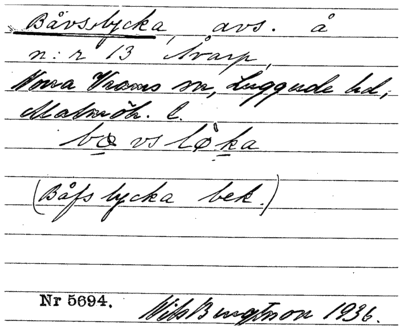 Båvslycka, avs. å
n:r 13 Åvarp,
Norra Vrams sn, Luggude hd,
Malmöh. l.
(Båfs lycka bek.)
Nr 5694. Nils Bengtsson 1936.